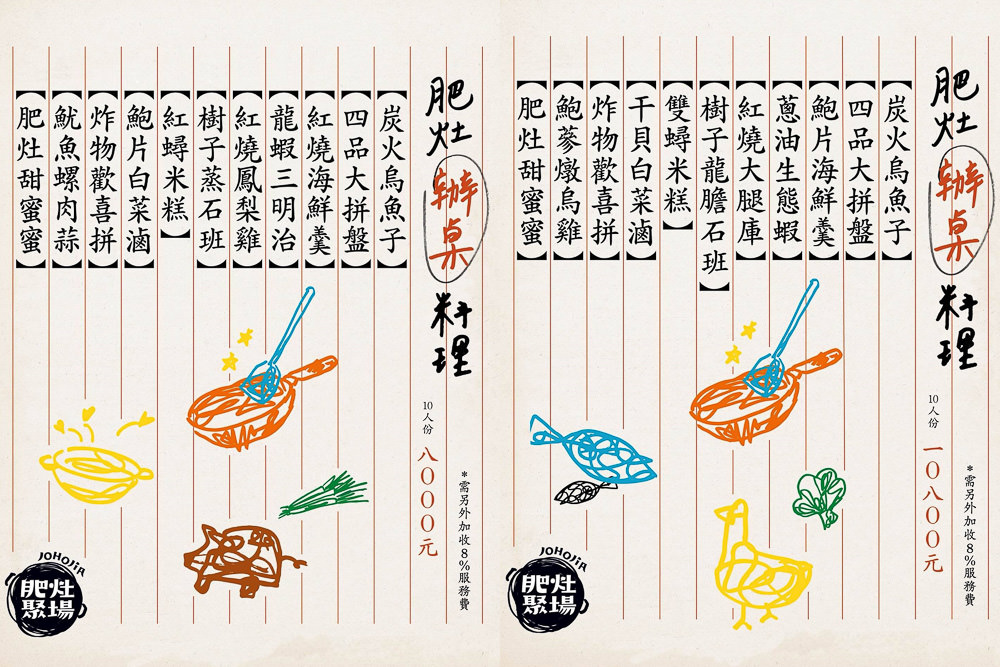 肥灶辦桌料理
10人份 八〇〇〇元
*需另外加收8%服務費
炭火烏魚子
四品大拼盤
紅燒海鮮羹
龍蝦三明治
紅燒鳳梨雞
樹子蒸石班
紅蟳米糕
鮑片白菜滷
炸物歡喜拼
魷魚螺肉蒜
肥灶甜蜜蜜
JOHOJiA
肥灶
聚場
肥灶辦桌料理
10人份 一〇八〇〇元
*需另外加收8%服務費
炭火烏魚子
四品大拼盤
鮑片海鮮羹
蔥油生態蝦
紅燒大腿庫
樹子龍膽石班
雙蟳米糕
干貝白菜滷
炸物歡喜拼
鮑蔘燉烏雞
肥灶甜蜜蜜
JOHOJiA
肥灶
聚場